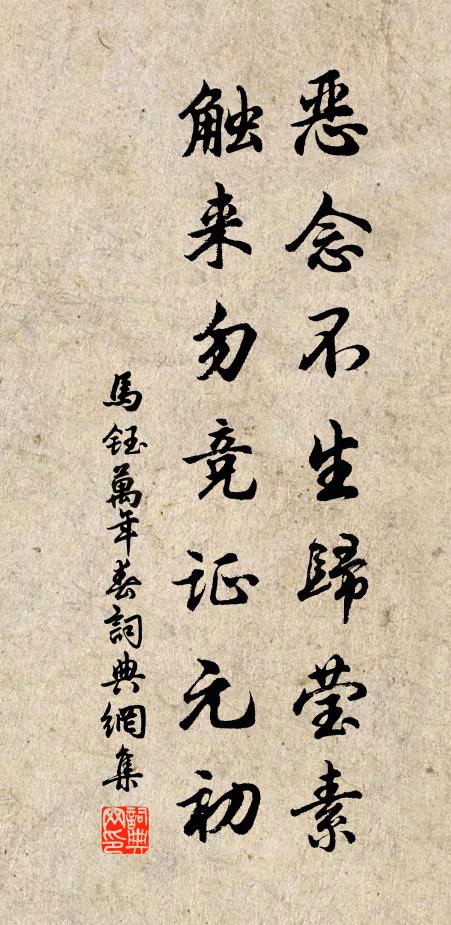 恶念不生歸莹素
触来勿竞证元初
馬鈺萬年春詞典網集
詞典网印